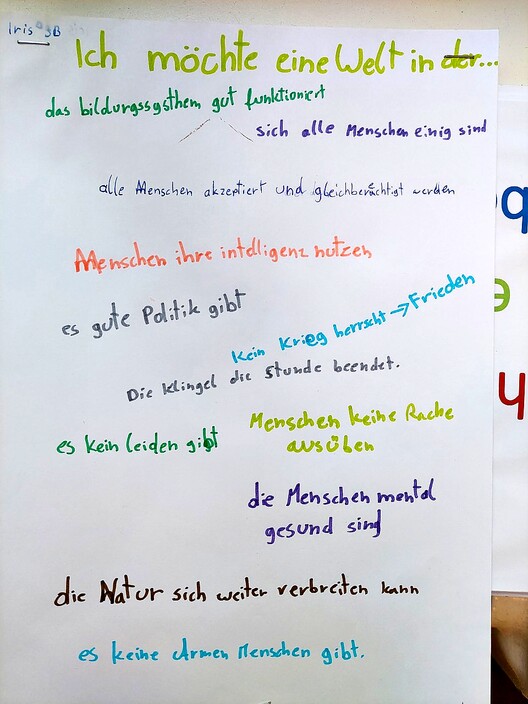 Iris 3B
Ich möchte eine Welt in der...
das bildungssysthem gut funktioniert
sich alle Menschen einig sind
alle Menschen akzeptiert und gleichberächtigt werden
Menschen ihre intelligenz nutzen
es gute Politik gibt
kein Krieg herrscht → Frieden
Die Klingel die Stunde beendet.
Menschen keine Rache
ausüben
es kein leiden gibt
die Menschen mental
gesund sind
die Natur sich weiter verbreiten kann
es keine Armen Menschen gibt.